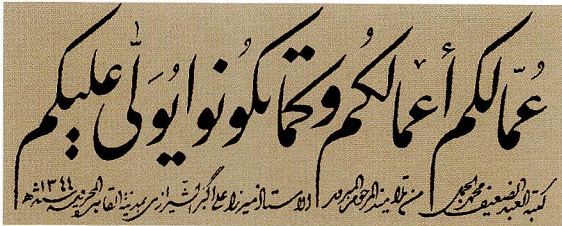 عُمّالكم أعمالكُم وكما تكُونُوا يُوَلّى عليكم
كتبه العبد الضعيف محمد من تلاميذ المرحوم المبرور الاستاذ ميرزا على اكبر الشيرازى بمدينة القاهرة المحروسة سنة ١٣٤٤ هـ